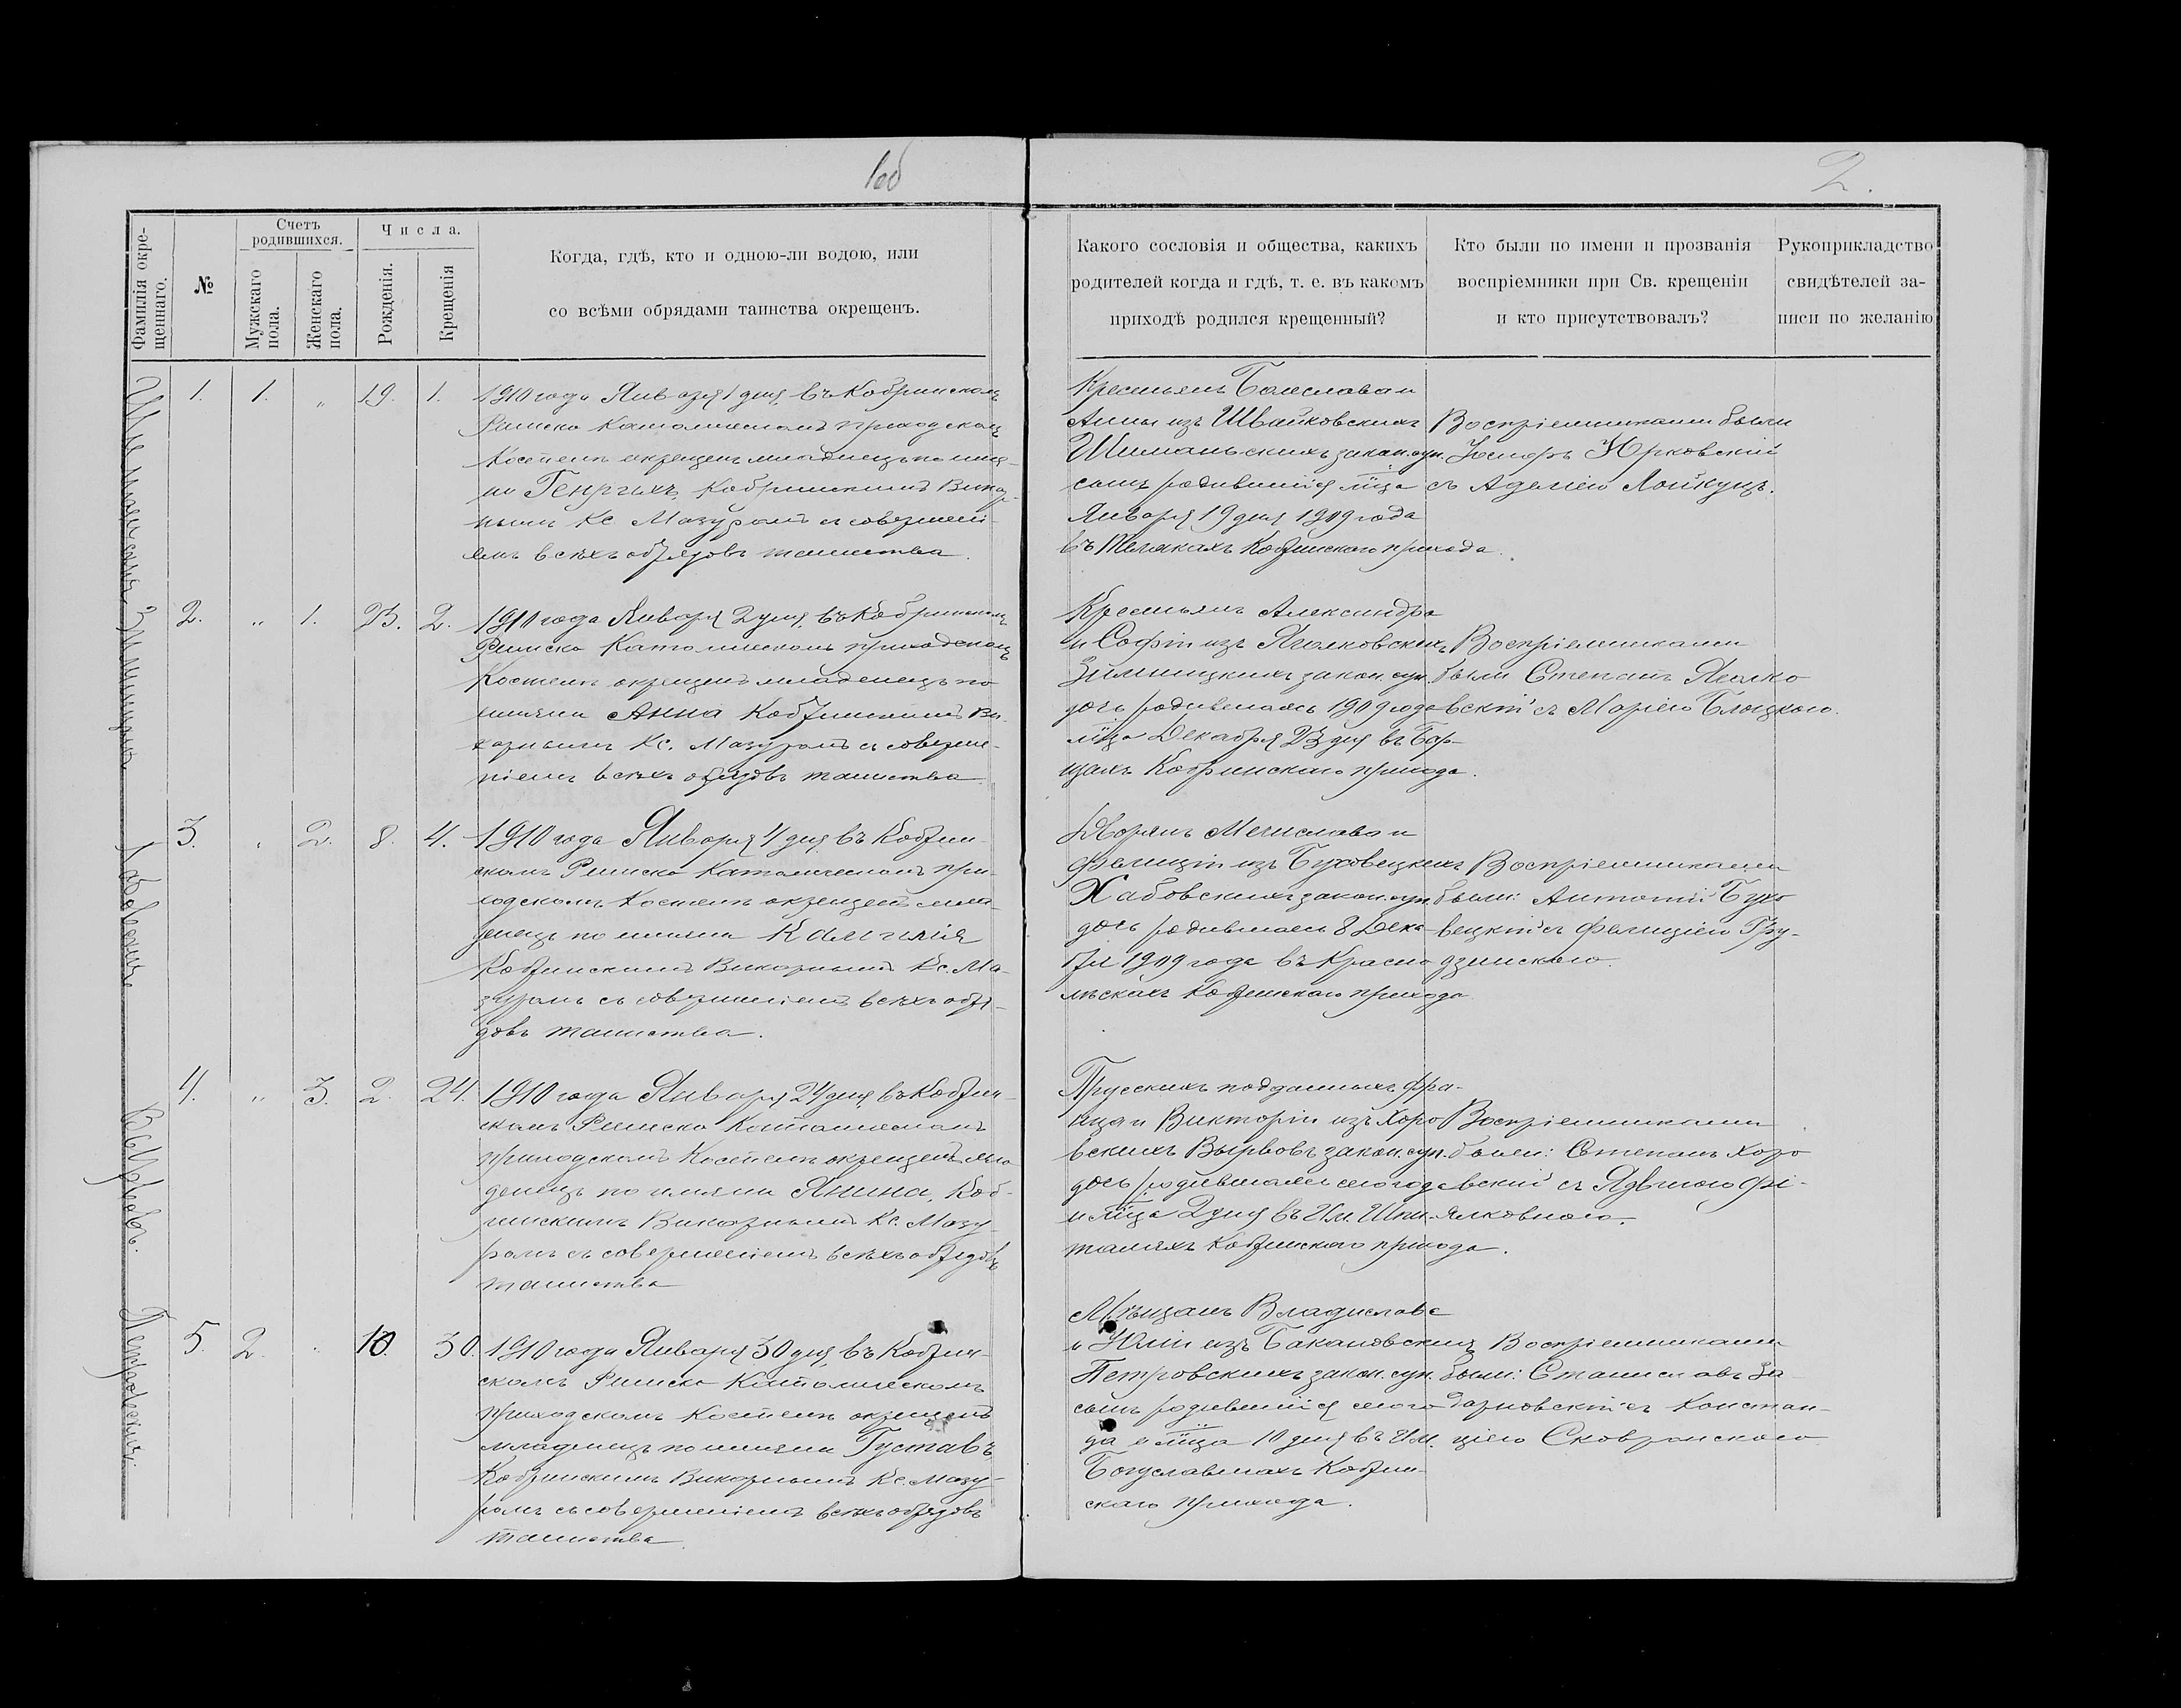 1об
2.
Фамилія окре-
щеннаго.
№
Счетъ
родившихся.
Мужскаго
пола.
Женскаго
пола.
Числа.
Рожденія.
Крещенія
Когда, гдѣ, кто и одною-ли водою, или
со всѣми обрядами таинства окрещенъ.
Какого сословія и общества, какихъ
родителей когда и гдѣ, т. е. въ какомъ
приходѣ родился крещенный?
Кто были по имени и прозванія
воспріемники при Св. крещеніи
и кто присутствовалъ?
Рукоприкладство
свидѣтелей за-
писи по желанію
1. 1. „ 19. 1.
1910 года Января 1 дня въ Кобринскомъ
Римско Католическомъ приходскомъ
Костелѣ окрещенъ младенецъ по име-
ни Генрыхъ Кобринскимъ Викар-
нымъ Кс Мазуромъ съ совершені-
емъ всѣхъ обрядовъ таинства.
Крестьянъ Болеслава и
Анны изъ Швайковскихъ
Шиманьскихъ закон. суп.
сынъ родившійся м̃ца
Января 19 дня 1909 года
въ Кобринскаго прихода.
Воспріемниками были
Юрковскій
съ Аделіею
2. „ 1. 23. 2.
1910 года Января 2 дня въ Кобринскомъ
Римско Католическомъ приходскомъ
Костелѣ окрещенъ младенецъ по
имени Анна Кобринскимъ Ви-
карнымъ Кс. Мазуромъ съ соверше-
ніемъ всѣхъ обрядовъ таинства
Крестьянъ Александра
и Софіи изъ Яголковскихъ
Зимницкихъ закон. суп.
дочь родившаяся 1909 года
м̃ца Декабря 23 дня въ Бор-
щахъ Кобринскаго прихода.
Воспріемниками
были Степанъ Яголко
вскій съ Маріею
3. „ 2. 8. 4.
1910 года Января 4 дня въ Кобрин-
скомъ Римско Католическомъ при-
ходскомъ Костелѣ окрещенъ мла-
денецъ по имени Камилія
Кобринскимъ Викарнымъ Кс. Ма-
зуромъ съ совершеніемъ всѣхъ обря-
довъ таинства.
Дворянъ Мечислава и
Фелиціи изъ Буховецкихъ
Хабовскихъ закон. суп.
дочь родившаяся 8 Дека-
бря 1909 года въ Красно
лѣскахъ Кобринскаго прихода
Воспріемниками
были: Антоній Бухо
вецкій съ Фелиціею Гру-
дзинскою.
Хабовскихъ
4. „ 3. 2. 24.
1910 года Января 24 дня въ Кобрин-
скомъ Римско Католическомъ
приходскомъ Костелѣ окрещенъ мла
денецъ по имени Янина, Коб-
ринскимъ Викарнымъ Кс. Мазу-
ромъ съ совершеніемъ всѣхъ обрядовъ
таинства
Прусскихъ подданныхъ Фра-
нца и Викторіи изъ Хоро
вскихъ Вырвовъ закон. суп.
дочь родившаяся сего года
и м̃ца 2 дня въ Им. Шпи-
таляхъ Кобринскаго прихода.
Воспріемниками
были: Степанъ Хоро
вскій съ Ядвигою Фі-
ялковною.
5. 2. „ 10. 30.
1910 года Января 30 дня въ Кобрин-
скомъ Римско Католическомъ
приходскомъ Костелѣ окрещенъ
младенецъ по имени Густавъ
Кобринскимъ Викарнымъ Кс. Мазу-
ромъ съ совершеніемъ всѣхъ обрядовъ
таинства.
Мѣщанъ Владислава
и Юліи изъ Бакановскихъ
Петровскихъ закон. суп.
сынъ родившійся сего го
да и м̃ца 10 дня въ Им.
Богуславичахъ Кобрин-
скаго прихода.
Воспріемниками
были: Станиславъ За
дарновскій съ Констан-
ціею Сковронскою
Петровскихъ.